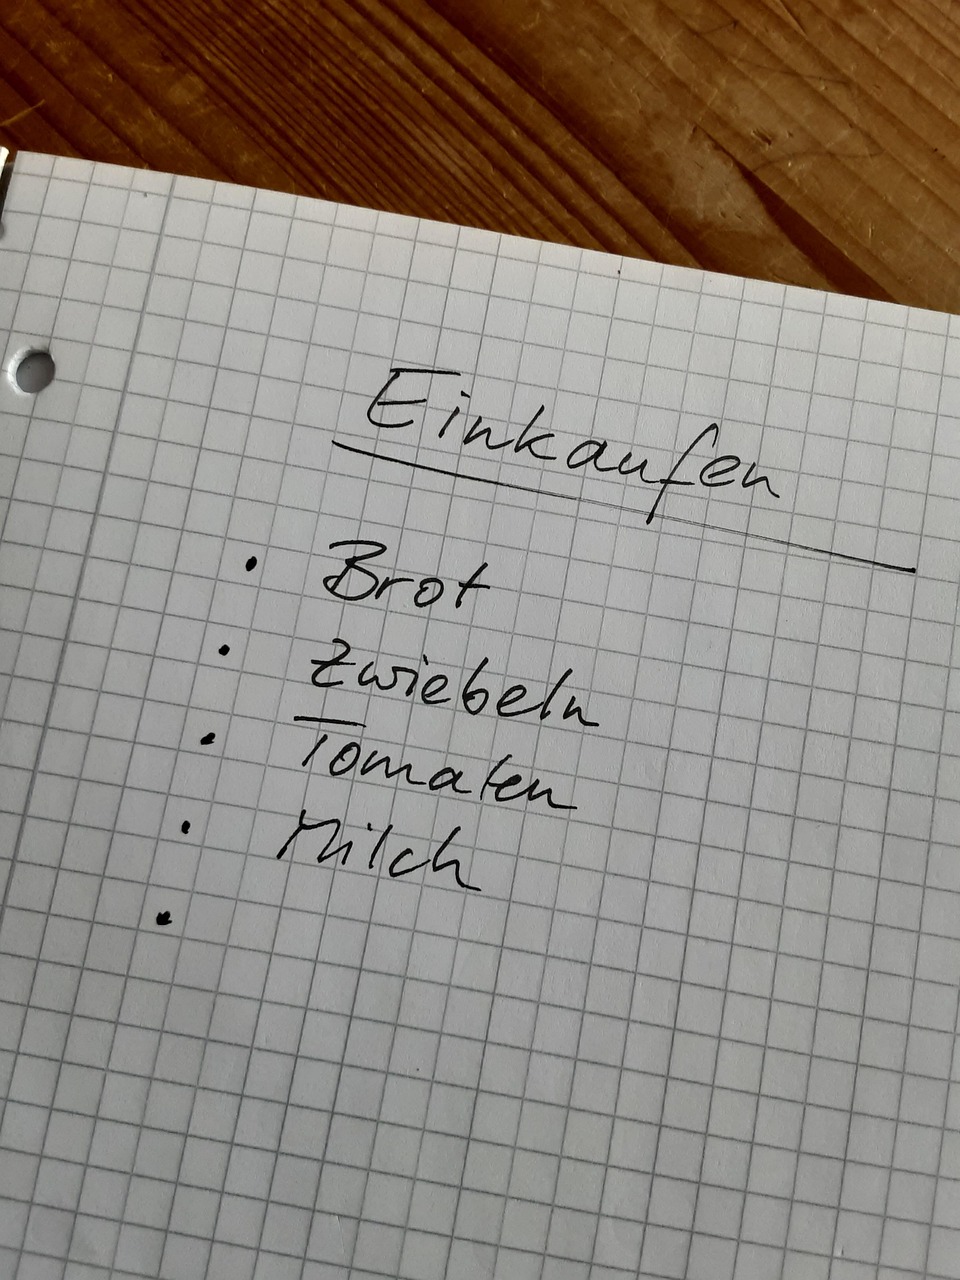 Einkaufen
• Brot
• Zwiebeln
• Tomaten
• Milch
•